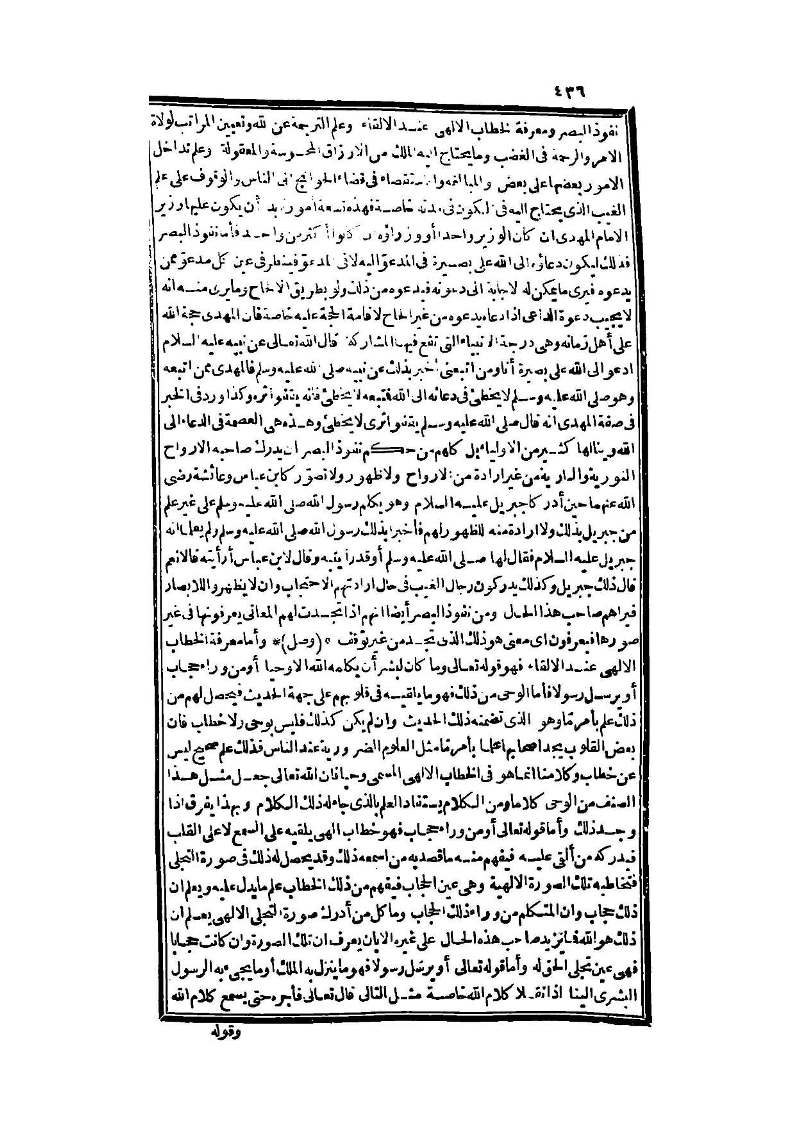 ٤٣٦
نفوذ البصر ومعرفة الخطاب الالهى عند الالقاء وعلم الترجمة عن الله وتعيين المراتب لولاة
الامر والرحمة فى الغضب وما يحتاج اليه الملك من الارزاق المحسوسة والمعقولة وعلم تداخل
الامور بعضها على بعض والمبالغة والاستقصاء فى قضاء الحوائج الناس والوقوف على علم
الغيب الذى يحتاج اليه فى الكون فى مدته خاصة فهذه تسعة أمور لابد أن يكون عليها وزير
الامام المهدى ان كان الوزير واحدا أو وزراؤه ان كانوا أكثر من واحد فأما نفوذ البصر
فذلك ليكون دعاؤه الى الله على بصيرة فى المدعو اليه لا فى المدعو فينظر فى عين كل مدعو ممن
يدعوه فيرى ما يمكن له الاجابة الى دعوته فيدعوه من ذلك ولو بطريق الالحاح وما يرى منه انه
لا يجيب دعوة الداعى اذا دعاه يدعوه من غير الحاح لاقامة الحجة عليه خاصة فان المهدى حجة الله
على أهل زمانه وهى درجة الانبياء التى تقع فيها المشاركة قال الله تعالى عن نبيه عليه السلام
ادعو الى الله على بصيرة أنا ومن اتبعنى أخبر بذلك عن نبيه صلى الله عليه وسلم فالمهدى ممن اتبعه
وهو صلى الله عليه وسلم لا يخطئ فى دعائه الى الله فتبعه لا يخطئ فانه يقفو أثره وكذا ورد فى الخبر
فى صفة المهدى انه قال صلى الله عليه وسلم يقفو اثرى لا يخطئ وهذه هى العصمة فى الدعاء الى
الله وينالها كثير من الاولياء بل كلهم من حكم نفوذ البصر ان يدرك صاحبه الارواح
النورية والنارية من غير ارادة من الارواح ولا ظهور ولا تصور كابن عباس وعائشة رضى
الله عنهما حين أدركا جبريل عليه السلام وهو يكلم رسول الله صلى الله عليه وسلم على غير علم
من جبريل بذلك ولا ارادة منه للظهور لهم فأخبرا بذلك رسول الله صلى الله عليه وسلم ولم يعلما انه
جبريل عليه السلام فقال لها صلى الله عليه وسلم أوقد رأيتيه وقال لابن عباس أرأيته قالا نعم
قال ذلك جبريل وكذلك يدركون رجال الغيب فى حال ارادتهم الاحتجاب وان لا يظهروا للابصار
فيراهم صاحب هذا الحال ومن نفوذ البصر أيضا انهم اذا تجسدت لهم المعانى يعرفونها فى غير
صورها فيعرفون اى معنى هو ذلك الذى تجسد من غير توقف * (وصل) * وأما معرفة الخطاب
الالهى عند الالقاء فهو قوله تعالى وما كان لبشر أن يكلمه الله الا وحيا أو من وراء حجاب
أو يرسل رسولا فأما الوحى من ذلك فهو ما يلقيه فى قلوبهم على جهة الحديث فيحصل لهم من
ذلك علم بأمر ما وهو الذى تضمنه ذلك الحديث وان لم يكن كذلك فليس بوحى ولا خطاب فان
بعض القلوب يجد اصحابها علما بأمر ما مثل العلوم الضرورية عند الناس فذلك علم صحيح ليس
عن خطاب وكلامنا انما هو فى الخطاب الالهى المسمى وحيا فان الله تعالى جعل مثل هذا
الصنف من الوحى كلاما ومن الكلام يستفاد العلم بالذى جاء له ذلك الكلام وبهذا يفرق اذا
وجد ذلك وأما قوله تعالى أو من وراء حجاب فهو خطاب الهى يلقيه على السمع لا على القلب
فيدركه من ألقى عليه فيفهم منه ما قصد به من اسمعه ذلك وقد يحصل له ذلك فى صورة التجلى
فتخاطبه تلك الصورة الالهية وهى عين الحجاب فيفهم من ذلك الخطاب علم ما يدل عليه ويعلم ان
ذلك حجاب وان المتكلم من وراء ذلك الحجاب وما كل من أدرك صورة التجلى الالهى يعلم ان
ذلك هو الله فما يزيد صاحب هذه الحال على غيره الا بان يعرف ان تلك الصورة وان كانت حجابا
فهى عين تجلى الحق له وأما قوله تعالى أو يرسل رسولا فهو ما ينزل به الملك أو ما يجىء به الرسول
البشرى الينا اذا نقلا كلام الله خاصة مثل التالى قال تعالى فأجره حتى يسمع كلام الله
وقوله